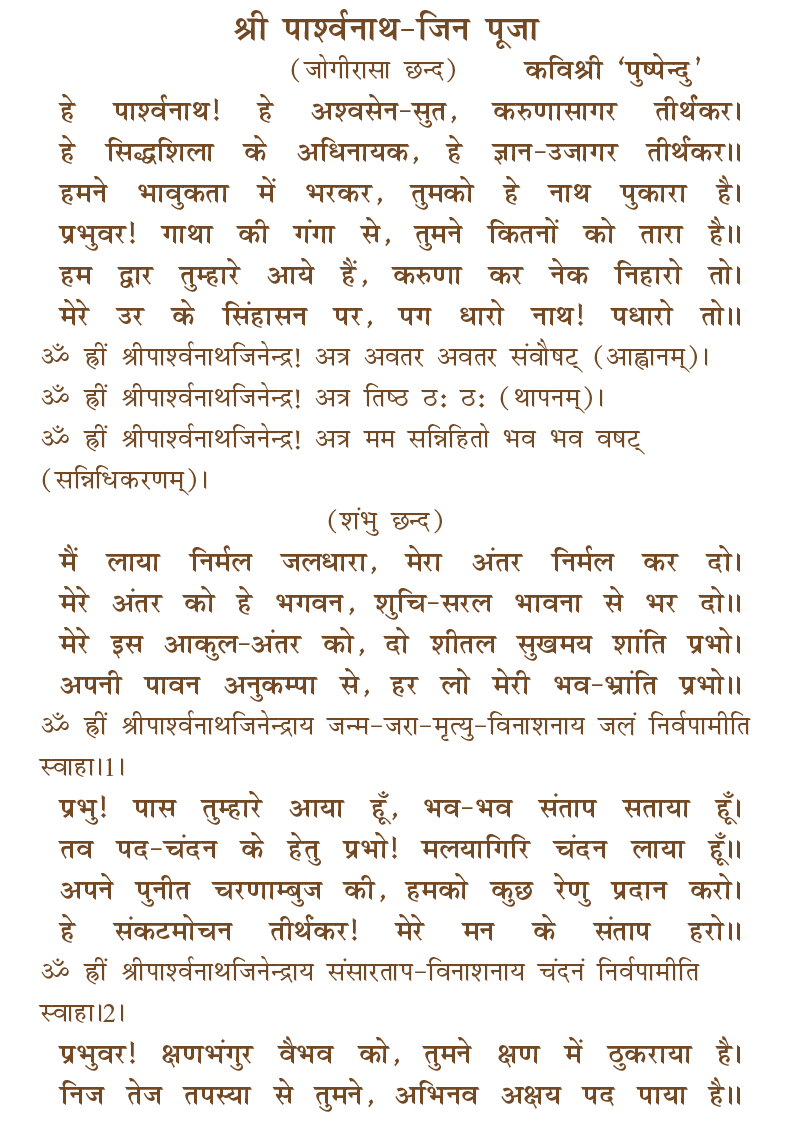 श्री पार्श्वनाथ-जिन पूजा
(जोगीरासा छन्द) कविश्री ‘पुष्पेन्दु’
हे पार्श्वनाथ! हे अश्वसेन-सुत, करुणासागर तीर्थंकर।
हे सिद्धशिला के अधिनायक, हे ज्ञान-उजागर तीर्थंकर।।
हमने भावुकता में भरकर, तुमको हे नाथ पुकारा है।
प्रभुवर! गाथा की गंगा से, तुमने कितनों को तारा है।।
हम द्वार तुम्हारे आये हैं, करुणा कर नेक निहारो तो।
मेरे उर के सिंहासन पर, पग धारो नाथ! पधारो तो।।
ॐ ह्रीं श्रीपार्श्वनाथजिनेन्द्र! अत्र अवतर अवतर संवौषट् (आह्वानम्)।
ॐ ह्रीं श्रीपार्श्वनाथजिनेन्द्र! अत्र तिष्ठ ठ: ठ: (थापनम्)।
ॐ ह्रीं श्रीपार्श्वनाथजिनेन्द्र! अत्र मम सन्निहितो भव भव वषट्
(सन्निधिकरणम्)।
(शंभु छन्द)
मैं लाया निर्मल जलधारा, मेरा अंतर निर्मल कर दो।
मेरे अंतर को हे भगवन, शुचि-सरल भावना से भर दो।।
मेरे इस आकुल-अंतर को, दो शीतल सुखमय शांति प्रभो।
अपनी पावन अनुकम्पा से, हर लो मेरी भव-भ्रांति प्रभो।।
ॐ ह्रीं श्रीपार्श्वनाथजिनेन्द्राय जन्म-जरा-मृत्यु-विनाशनाय जलं निर्वपामीति
स्वाहा।1।
प्रभु! पास तुम्हारे आया हूँ, भव-भव संताप सताया हूँ।
तव पद-चंदन के हेतु प्रभो! मलयागिरि चंदन लाया हूँ।।
अपने पुनीत चरणाम्बुज की, हमको कुछ रेणु प्रदान करो।
हे संकटमोचन तीर्थंकर! मेरे मन के संताप हरो।।
ॐ ह्रीं श्रीपार्श्वनाथजिनेन्द्राय संसारताप-विनाशनाय चंदनं निर्वपामीति
स्वाहा।2।
प्रभुवर! क्षणभंगुर वैभव को, तुमने क्षण में ठुकराया है।
निज तेज तपस्या से तुमने, अभिनव अक्षय पद पाया है।।